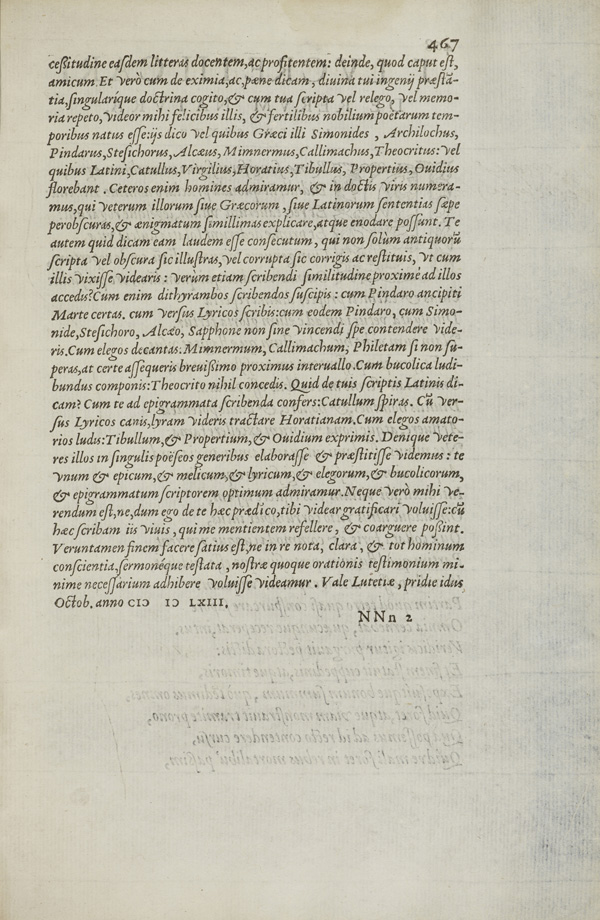 467
ceßitudine easdem litteras docentem, ac profitentem: deinde, quod caput est,
amicum. Et verò cum de eximia, ac, pæne dicam, diuina tui ingenij præstã-
tia, singularíque doctrina cogito, & cum tua scripta vel relego, vel memo-
ria repeto, videor mihi felicibus illis, & fertilibus nobilium poëtarum tem-
poribus natus esse: ijs dico vel quibus Græci illi Simonides, Archilochus,
Pindarus, Stesichorus, Alcæus, Mimnermus, Callimachus, Theocritus: vel
quibus Latini, Catullus, Virgilius, Horatius, Tibullus, Propertius, Ouidius
florebant. Ceteros enim homines admiramur, & in doctis viris numera-
mus, qui veterum illorum siue Græcorum, siue Latinorum sententias sæpe
perobscuras, & ænigmatum simillimas explicare, atque enodare possunt. Te
autem quid dicam eam laudem esse consecutum, qui non solùm antiquorũ
scripta vel obscura sic illustras, vel corrupta sic corrigis ac restituis, vt cum
illis vixisse videaris: verùm etiam scribendi similitudine proximè ad illos
accedis? Cum enim dithyrambos scribendos suscipis: cum Pindaro ancipiti
Marte certas. cum versus Lyricos scribis: cum eodem Pindaro, cum Simo-
nide, Stesichoro, Alcæo, Sapphone non sine vincendi spe contendere vide-
ris. Cum elegos decantas: Mimnermum, Callimachum, Philetam si non su-
peras, at certe assequeris breuißimo proximus interuallo. Cum bucolica ludi-
bundus componis: Theocrito nihil concedis. Quid de tuis scriptis Latinis di-
cam? Cum te ad epigrammata scribenda confers: Catullum spiras. Cũ ver-
sus Lyricos canis, lyram videris tractare Horatianam. Cum elegos amato-
rios ludis: Tibullum, & Propertium, & Ouidium exprimis. Denique vete-
res illos in singulis poëseos generibus elaborasse & præstitisse videmus: te
vnum & epicum, & melicum, & lyricum, & elegorum, & bucolicorum,
& epigrammatum scriptorem optimum admiramur. Neque verò mihi ve-
rendum est, ne, dum ego de te hæc prædico, tibi videar gratificari voluisse: cũ
hæc scribam iis viuis, qui me mentientem refellere, & coarguere poßint.
Veruntamen finem facere satius est, ne in re nota, clara, & tot hominum
conscientia, sermonéque testata, nostræ quoque orationis testimonium mi-
nime necessarium adhibere voluisse videamur. Vale Lutetiæ, pridie idus
Octob. anno CIↃ IↃ LXIII.
NNn 2